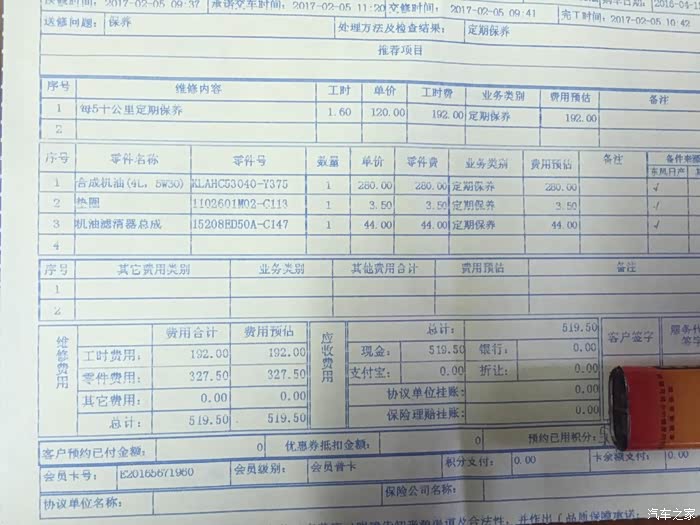 2017-02-05 09:37 承诺交车时间: 2017-02-05 11:20 交修时间: 2017-02-05 09:41 完工时间: 2017-02-05 10:42
送修问题: 保养 处理方法及检查结果: 定期保养
推荐项目
序号 维修内容 工时 单价 工时费 业务类别 费用预估 备注
1 每5千公里定期保养 1.60 120.00 192.00 定期保养 192.00
2
序号 零件名称 零件号 数量 单价 零件费 业务类别 费用预估 备注 备件来源
东风日产
1 合成机油(4L, 5W30) KLAHC53040-Y375 1 280.00 280.00 定期保养 280.00 √
2 垫圈 1102601M02-C113 1 3.50 3.50 定期保养 3.50 √
3 机油滤清器总成 15208ED50A-C147 1 44.00 44.00 定期保养 44.00 √
4
序号 其它费用类别 业务类别 其他费用合计 费用预估 备注
1
2
维修费用 费用合计 费用预估 应收费用 总计: 519.50 客户签字
工时费用: 192.00 192.00 现金: 519.50 银行: 0.00
零件费用: 327.50 327.50 支付宝: 0.00 折让: 0.00
其它费用: 0.00 0.00 协议单位挂账: 0.00
总计: 519.50 519.50 保险理赔挂账: 0.00
客户预约已付金额: 0 优惠券抵扣金额: 0 预约已用积分:
会员卡号: E20165671960 会员级别: 会员普卡 积分支付: 0.00 卡余额支付: 0.00
协议单位名称: 保险公司名称:
汽车之家